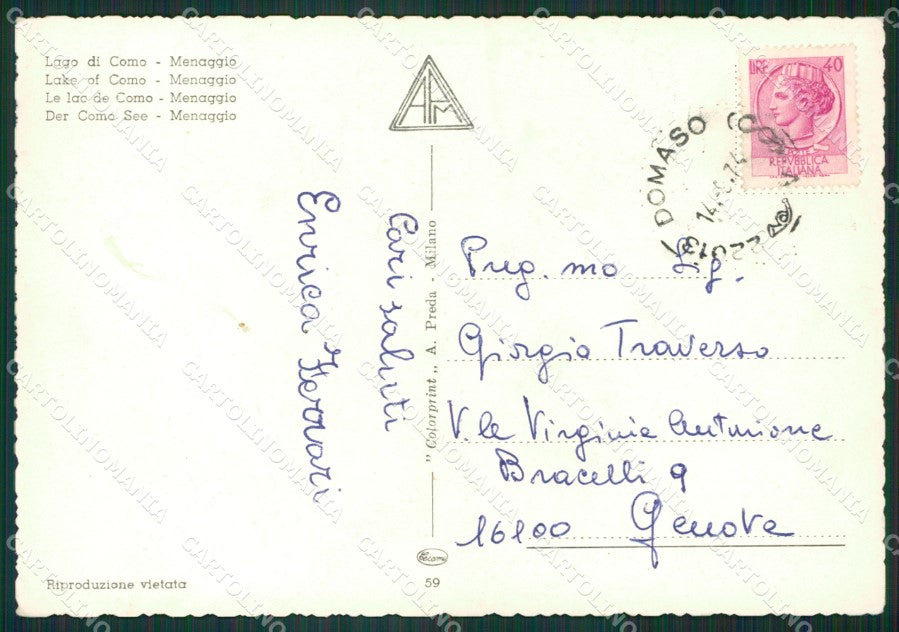 Lago di Como - Menaggio
Lake of Como - Menaggio
Le lac de Como - Menaggio
Der Como See - Menaggio
APM
LIRE 40
POSTE
REPVBBLICA
ITALIANA
22013 DOMASO (COMO)
Cari saluti
Enrica Ferrari
"Colorprint" A. Preda - Milano
Preg.mo Sig.
Giorgio Traverso
V.le Virginia Centurione
Bracelli 9
16100 Genova
Riproduzione vietata
Cecami
59
CARTOLINOMANIA